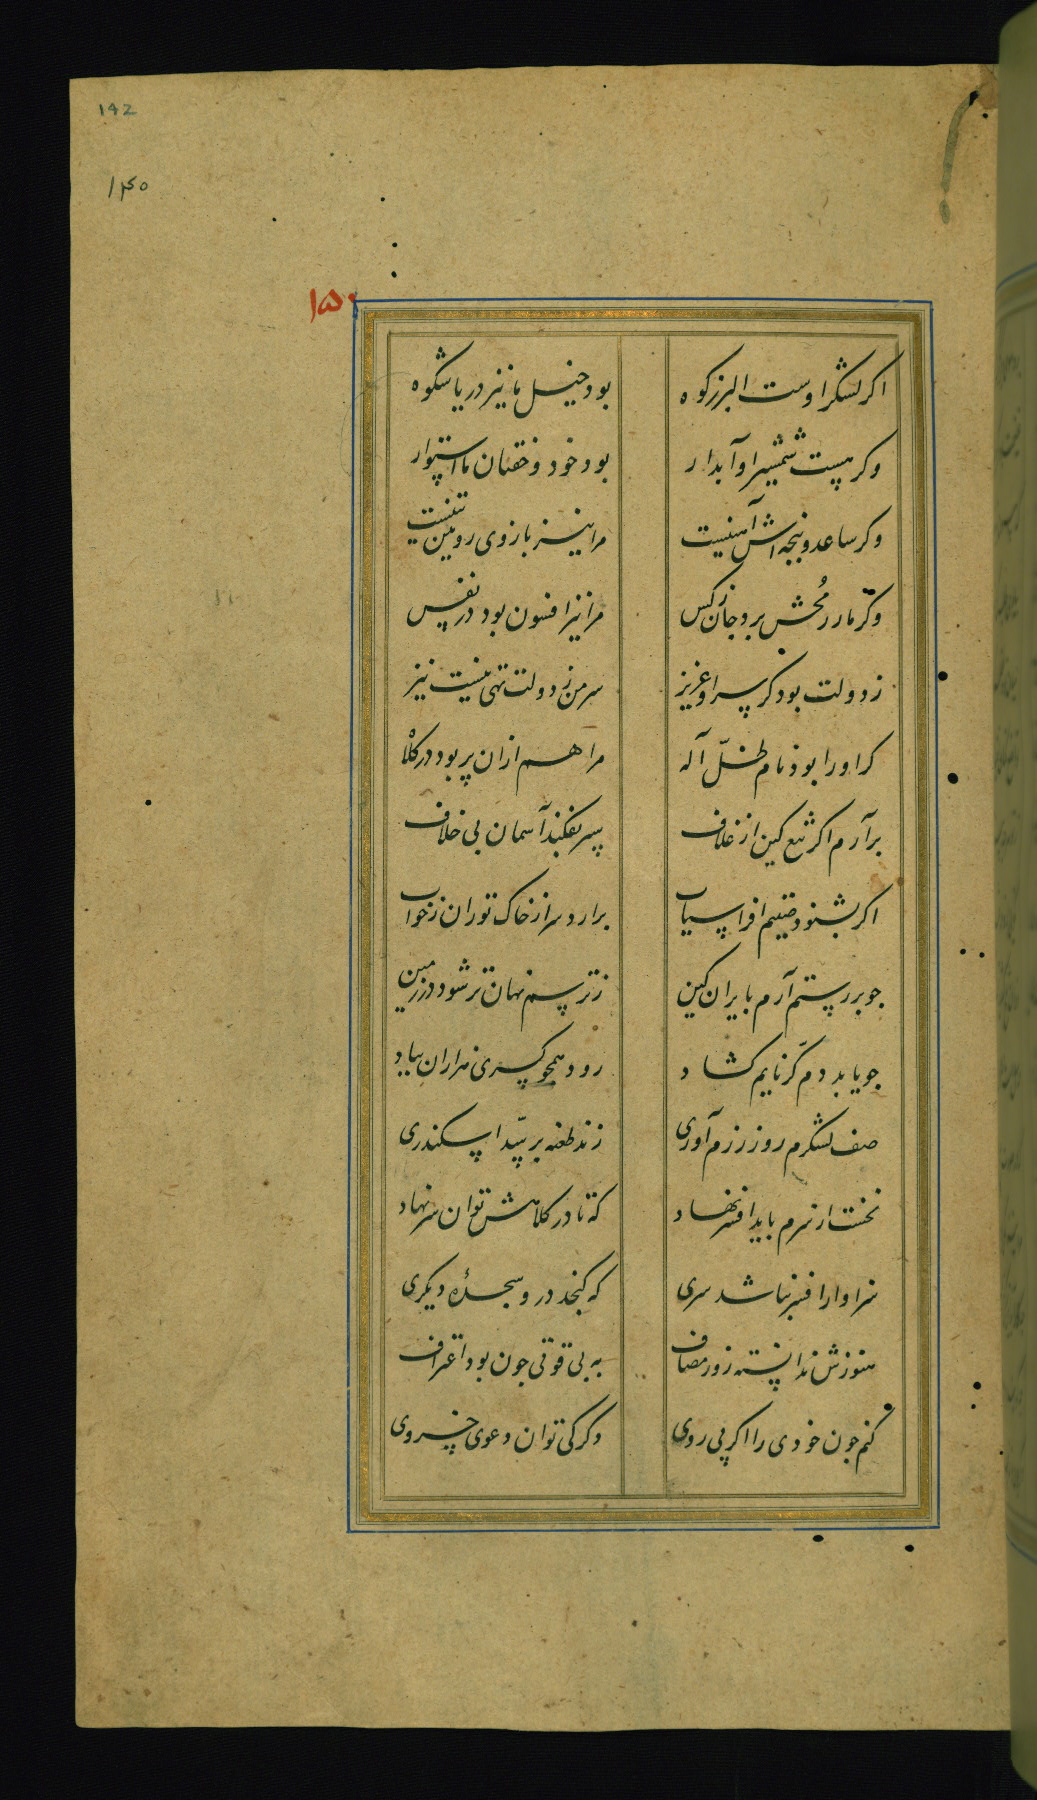 142
۱۴۵
۱۵۰
اکر لشکر اوست البرز کوه
بود خیل ما نیز دریا شکوه
وکر هست شمشیر او آبدار
بود خود و خفتان ما استوار
وکر ساعد و پنجه اش آهنیست
مرا نیز بازوی رویین تنیست
وکر مار رمحش برد جان زکس
مرا نیز افسون بود در نفس
ز دولت بود کر سر او عزیز
سر من ز دولت تهی نیست نیز
کر او را بود نام ظلّ آله
مرا هم ازان پر بود در کلاه
برآرم اکر تیغ کین از غلاف
سپر بفکند آسمان بی خلاف
اکر بشنود افراسیاب
برارد سر از خاک توران زخواب
جو بر رستم آرم بایران کین
ز ترسم نهان تر شود در زمین
جو یابد دم کرنایم کشاد
رود همجو کسری هزاران بباد
صف لشکرم روز رزم آوری
زند طعنه بر سد اسکندری
نخست از سرم باید افسر نهاد
که تا در کلاهش توان سر نهاد
سزاوار افسر نباشد سری
که کنجد درو سجدۀ دیکری
هنوزش ندانسته زور مصاف
به بی قوتی جون بود اعتراف
کنم جون خودی را اکر پی روی
وکر کی توان دعوی خسروی